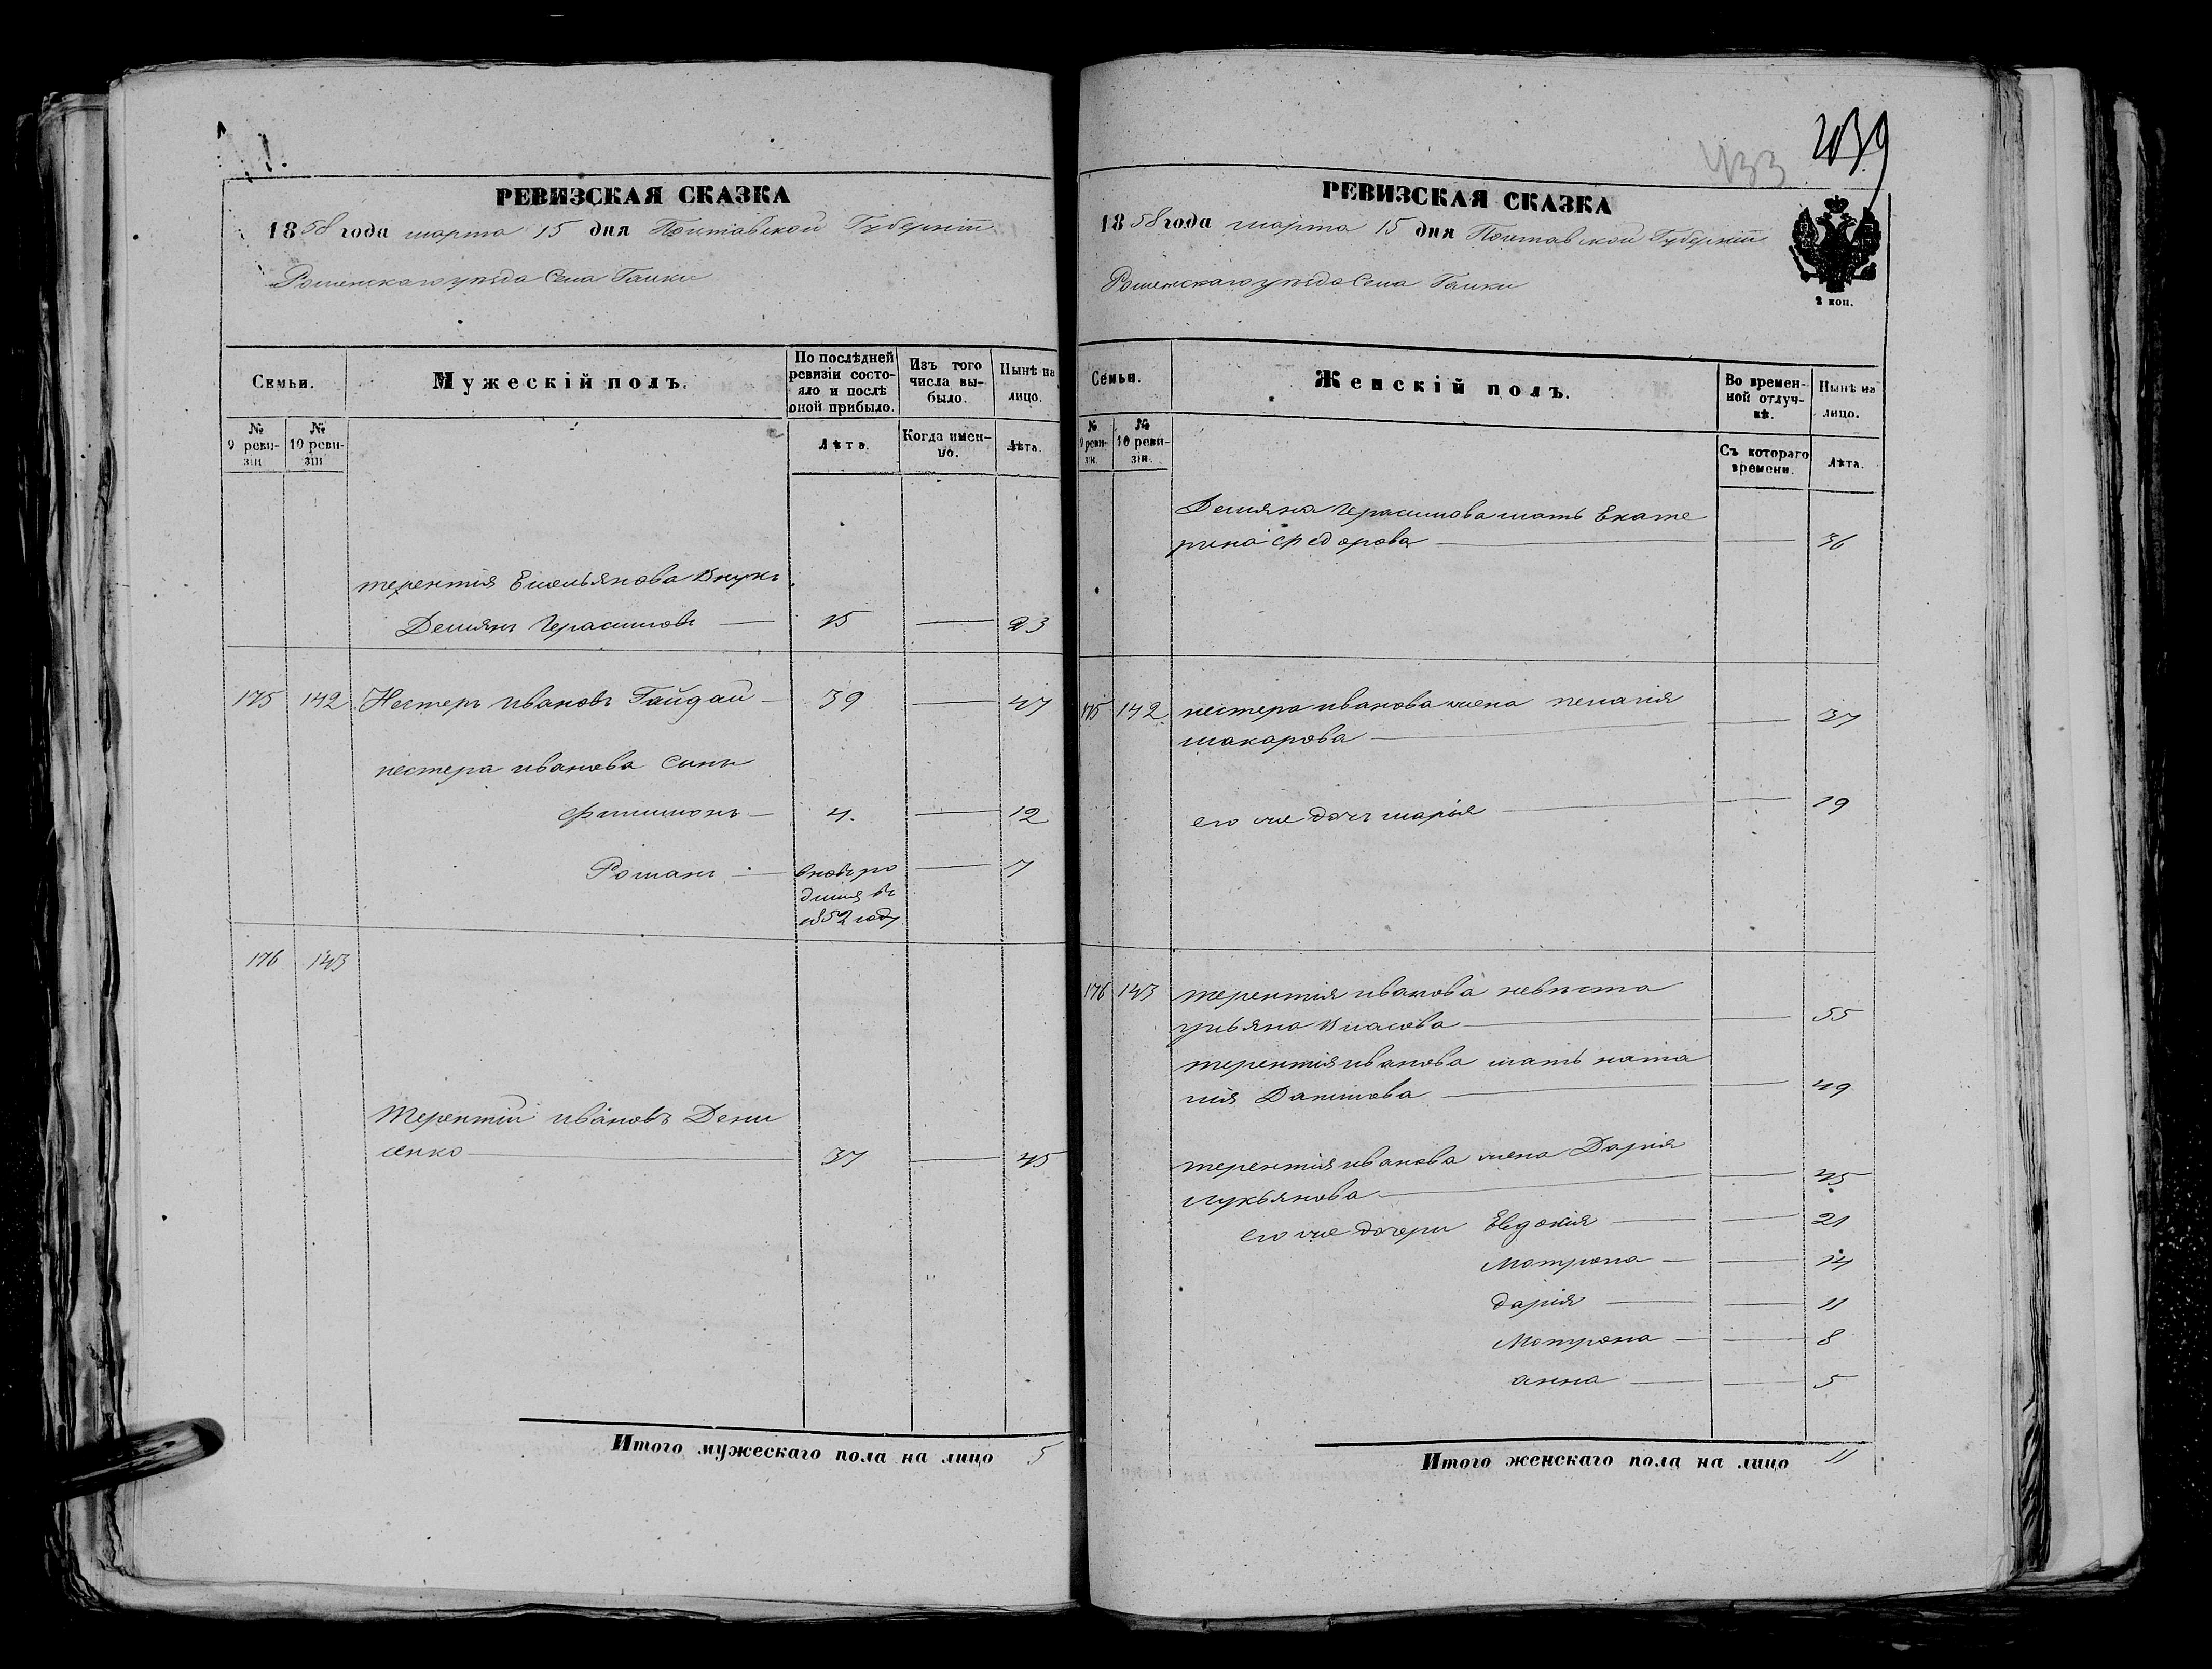 РЕВИЗСКАЯ СКАЗКА
1858 года марта 15 дня Полтавской Губерніи
Роменскаго уѣзда Села Галки
Семьи.
Мужескій полъ.
По послѣдней ревизіи состояло и послѣ оной прибыло.
Изъ того числа выбыло.
Нынѣ на лицо.
№ 9 ревизіи
№ 10 ревизіи
Лѣта.
Когда именно.
Лѣта.
терентія Емельянова Внукъ
Демянъ Герасимовъ — 15 — 23
175 142 Нестеръ Ивановъ Гайдай — 39 — 47
нестера иванова Сыны
филимонъ — 4. — 12
Романъ — вновь ро — 7
дился въ
1852 году
176 143
Терентій ивановъ Дени
сенко — 37 — 45
Итого мужескаго пола на лицо 5
433
439
РЕВИЗСКАЯ СКАЗКА
1858 года марта 15 дня Полтавской Губерніи
Роменскаго уѣзда Села Галки
2 коп.
Семьи.
Женскій полъ.
Во временной отлучкѣ.
Нынѣ на лицо.
№ 9 ревизіи
№ 10 ревизіи.
Съ котораго времени.
Лѣта.
Демяна Герасимова мать Екате
рина федорова — — 36
175 142 нестера иванова жена пелагія
макарова — — 37
его же дочь марья — — 19
176 143 терентія иванова невѣста
ульяна Власова — — 55
терентія иванова мать ната
лія Данилова — — 49
терентія иванова жена Дарія
лукьянова — — 45
его же дочери Евдокія — — 21
Мотрона — — 14
дарія — — 11
Мотрона — — 8
анна — — 5
Итого женскаго пола на лицо 11